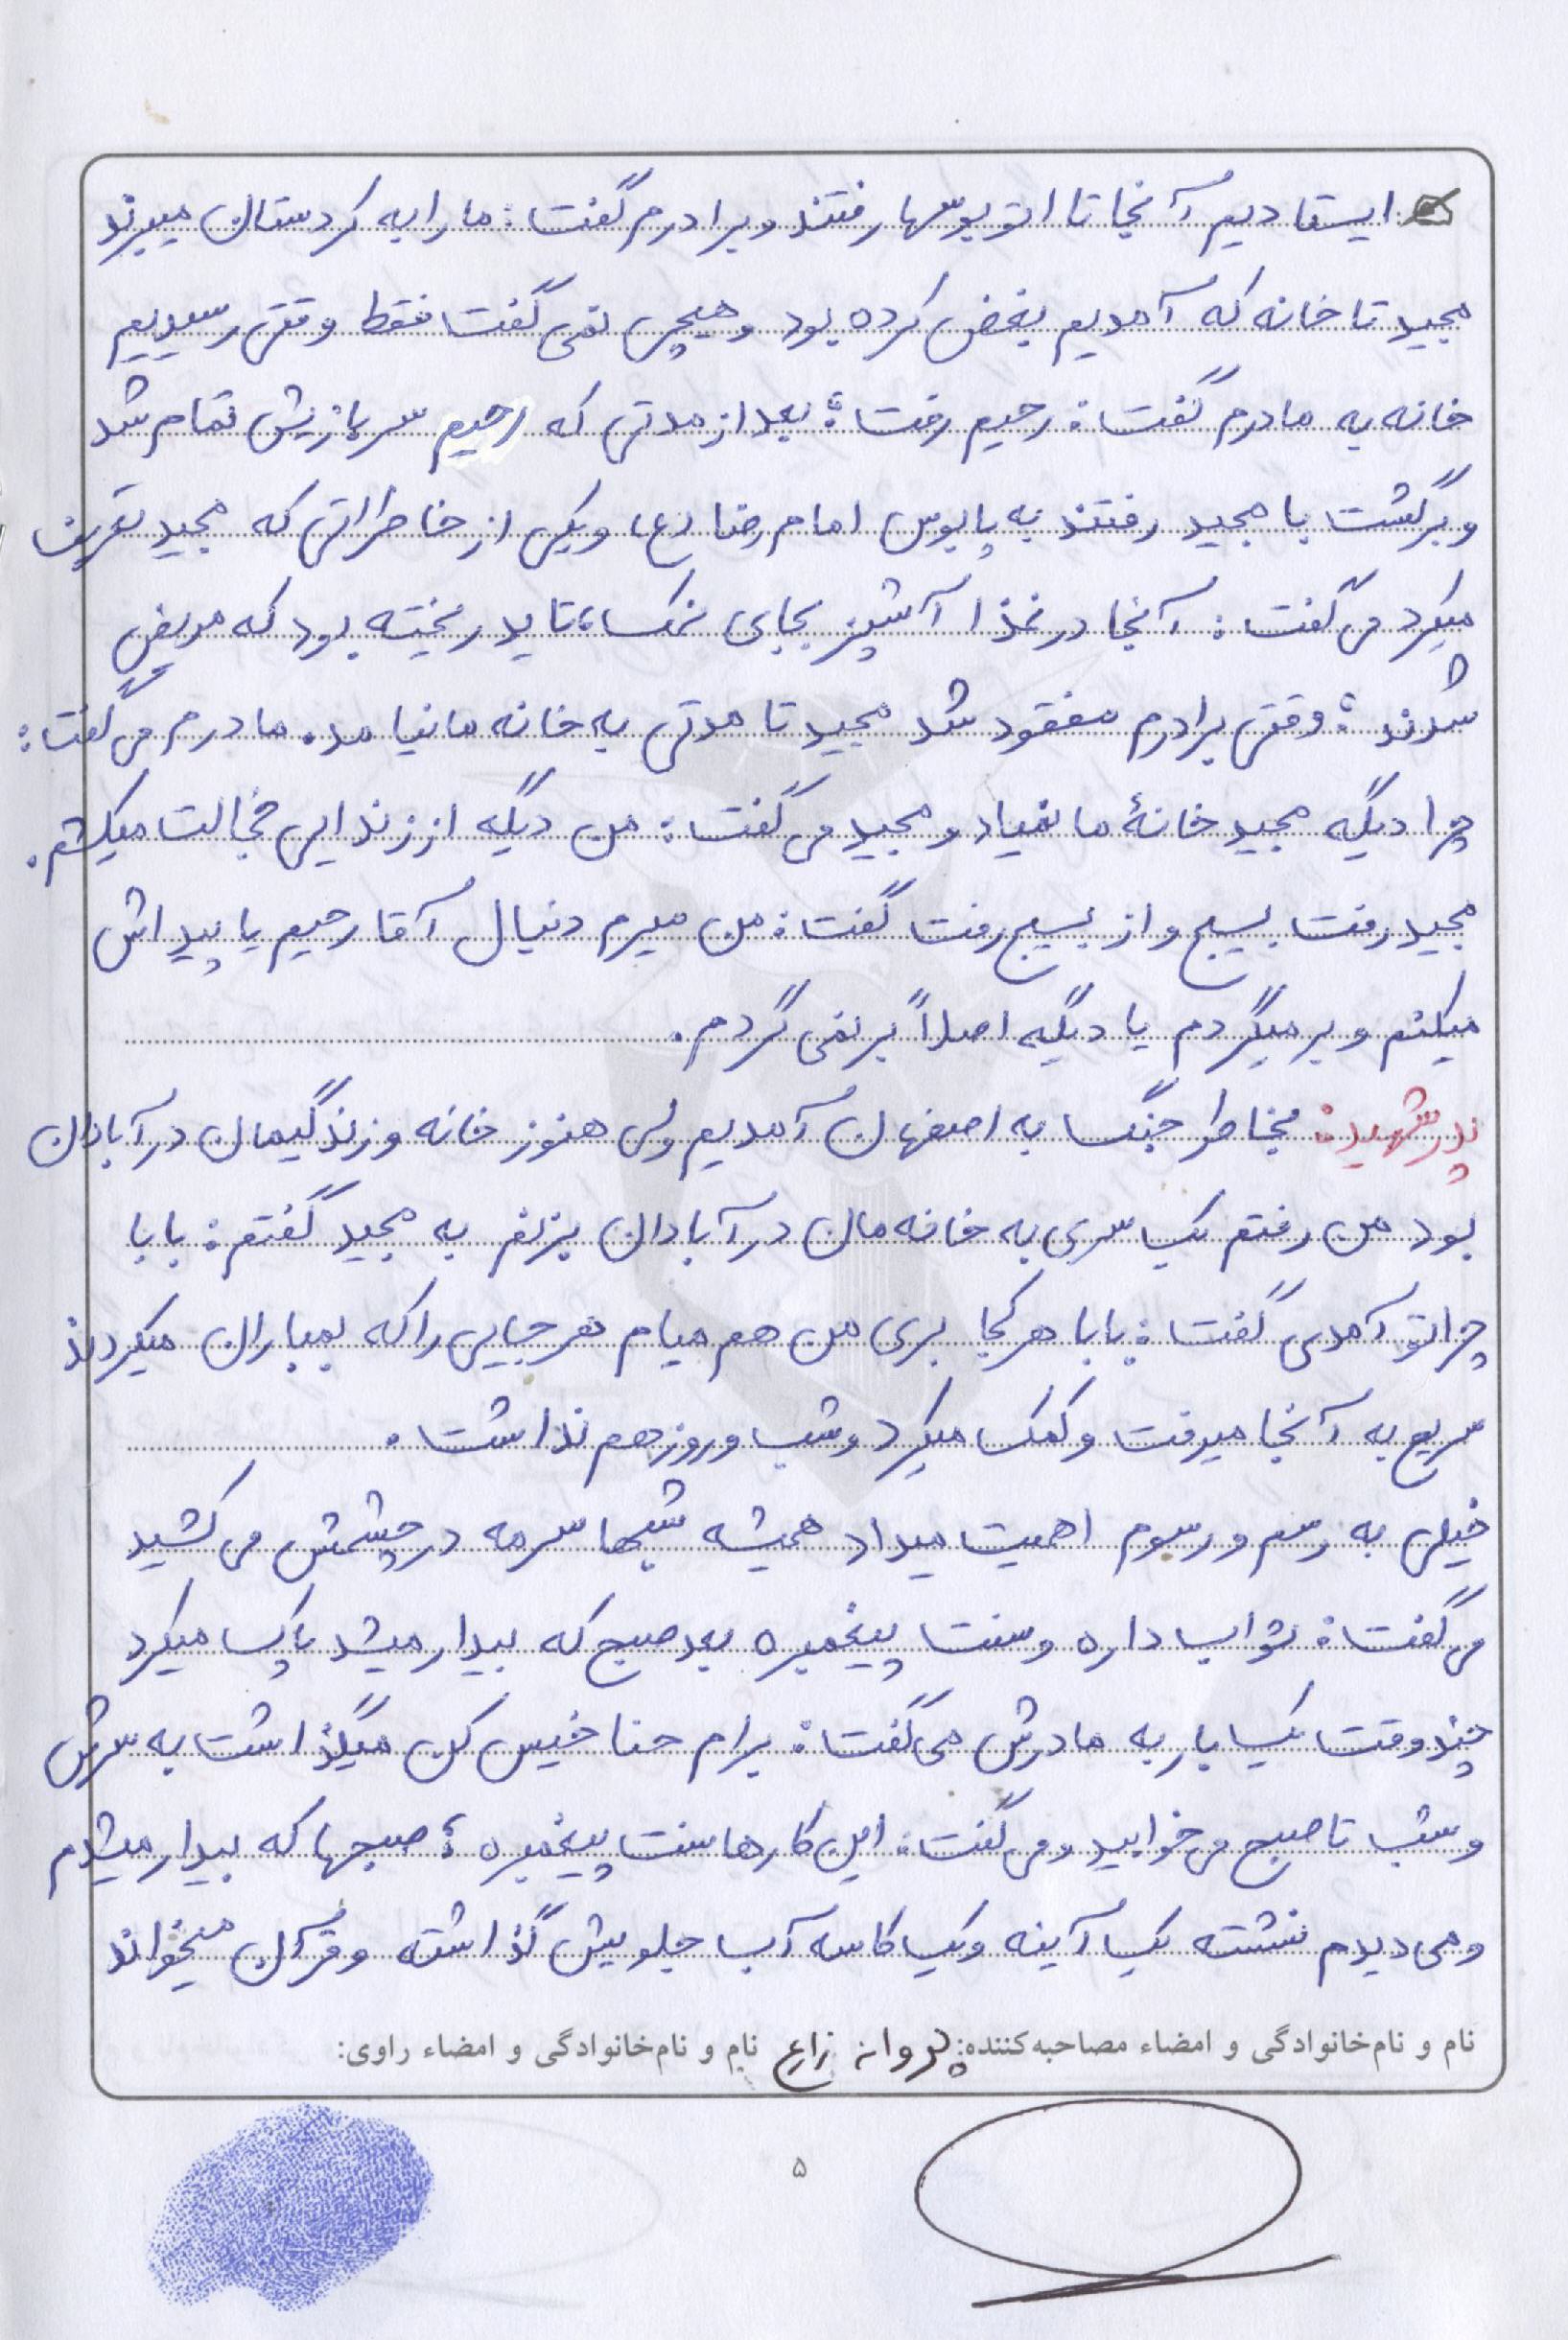 ایستادیم آنجا تا اتوبوسها رفتند و برادرم گفت: ما را به کردستان میبرند
مجید تا خانه که آمدیم بغض کرده بود و هیچی نمی گفت فقط وقتی رسیدیم
خانه به مادرم گفت: رحیم رفت؛ بعد از مدتی که رحیم سربازیش تمام شد
و برگشت با مجید رفتند به پابوس امام رضا (ع) و یکی از خاطراتی که مجید تعریف
میکرد می گفت: آنجا در غذا آشپز بجای نمک، تاید ریخته بود که مریض
شدند؛ وقتی برادرم مفقود شد مجید تا مدتی به خانه ما نیامد. مادرم می گفت:
چرا دیگه مجید خانهٔ ما نمیاد و مجید می گفت: من دیگه از زندایی خجالت میکشم.
مجید رفت بسیج و از بسیج رفت گفت: من میرم دنبال آقا رحیم یا پیداش
میکنم و بر میگردم یا دیگه اصلاً بر نمی گردم.
پدر شهید: بخاطر جنگ به اصفهان آمدیم ولی هنوز خانه و زندگیمان در آبادان
بود من رفتم یک سری به خانه مان در آبادان بزنم به مجید گفتم: بابا
چرا تو آمدی گفت: بابا هر کجا بری من هم میام هر جایی را که بمباران میکردند
سریع به آنجا میرفت و کمک میکرد و شب و روز هم نداشت.
خیلی به رسم و رسوم اهمیت میداد همیشه شبها سرمه در چشمش می کشید
می گفت: ثواب داره و سنت پیغمبره بعد صبح که بیدار میشد پاک میکرد
چند وقت یک بار به مادرش می گفت: برام حنا خیس کن میگذاشت به سرش
و شب تا صبح می خوابید و می گفت: این کارها سنت پیغمبره؛ صبحها که بیدار میشدم
و می دیدم نشسته یک آینه و یک کاسه آب جلویش گذاشته و قرآن میخواند
نام و نام‌خانوادگی و امضاء مصاحبه‌کننده: پروانه زارع نام و نام‌خانوادگی و امضاء راوی:
۵